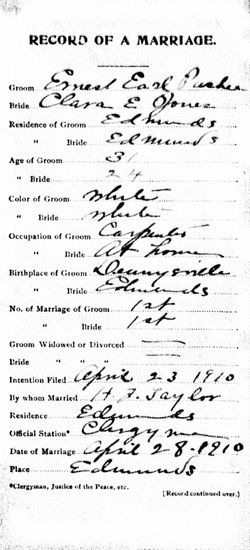 RECORD OF A MARRIAGE.
Groom Ernest Earl
Bride Clara E Jones
Residence of Groom Edmunds
" Bride Edmunds
Age of Groom 31
" Bride 24
Color of Groom White
" Bride White
Occupation of Groom Carpenter
" Bride At home
Birthplace of Groom Dennysville
" Bride Edmunds
No. of Marriage of Groom 1st
" Bride 1st
Groom Widowed or Divorced —
Bride " " " —
Intention Filed April 23 1910
By whom Married H. F. Taylor
Residence Edmunds
Official Station* Clergyman
Date of Marriage April 28-1910
Place Edmunds
*Clergyman, Justice of the Peace, etc.
[Record continued over.]